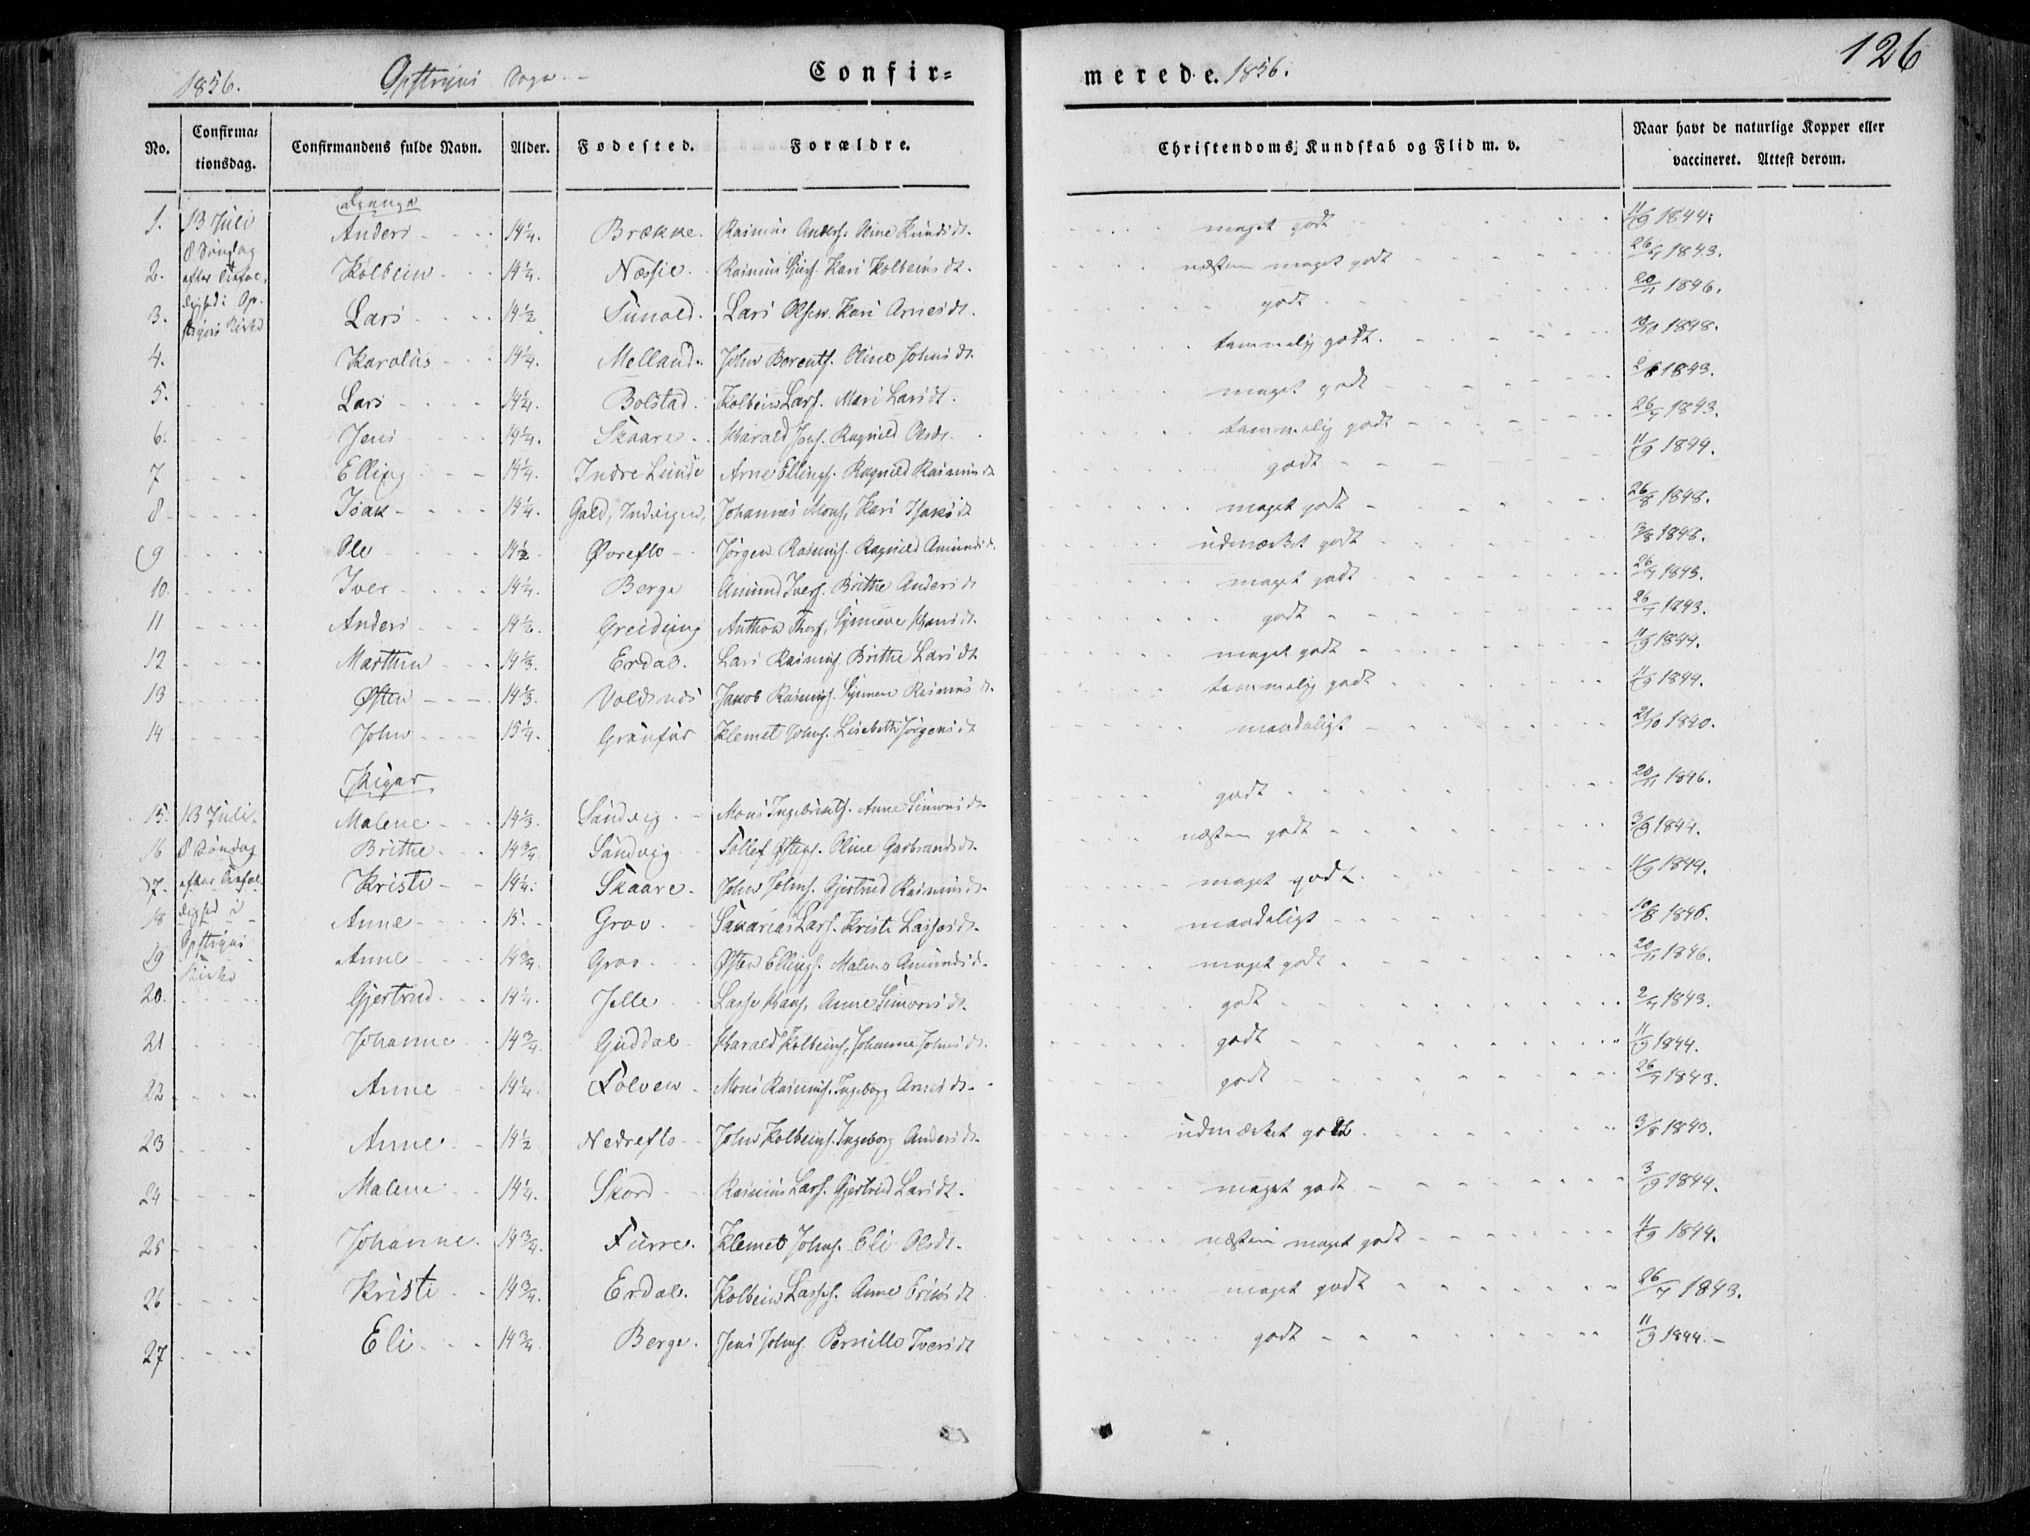 126
1856. Opstryns Sogn. Confir= merede. 1856.
No. Confirma=tionsdag. Confirmandens fulde Navn. Alder. Fødested. Forældre. Christendoms Kundskab og Flid m. v. Naar havt de naturlige Kopper eller vaccineret. Attest derom.
Drenge
1. 13 Juli Anders 14¼. Brække. Rasmus Anders. Knudsdt. meget godt 11/9 1844.
8 Søndag
2. efter Kolbein 14¼. Næssie. Rasmus Kari Kolbeinsdt. næsten meget godt 26/7 1843.
3. Lars 14½ Sunold. Lars Olsen. Kari Arnesdt. godt 20/11 1846.
4. Karolus 14¼. Melland. John Berents. Oline Johnsdt. temmelig godt. 1848.
5. Lars 14¼. Bolstad. Kolbein Lars. Mari Larsdt. meget godt 1843.
6. Jens 14¼. Skaare. Harald Jens. Ragnild Olsdt. temmelig godt 26/7 1843.
7 Elling 14¼. Indre Lunde Arne Ellings. Ragnild Rasmusdt godt 11/9 1844.
8 Isak 14¼. Gald, Indvigen, Johannes Mons. Kari Isaksdt meget godt 26/8 1848.
9 Ole 14½ Øvreflo Jørgen Rasmus. Ragnild Amundsdt. udmærket godt 3/8 1848.
10. Iver 14¼. Berge Amund Ivers. Brithe Andersdt meget godt 26/7 1843.
11 Anders 14½. Greidung Anthon Synneve Hansdt. godt 26/7 1843.
12 Marthin 14⅓. Erdal. Lars Rasmus. Brithe Larsdt meget godt 11/9 1844.
13 Østen 14⅓. Voldsnes Jakob Rasmus. Synneve Rasmusdt. temmelig godt 11/9 1844.
14 John 15¼. Granfur Klemet Johns. Lisebeth Jørgensdt maadeligt 21/10 1840.
Piger
15. 13 Juli. Malene 14⅓. Sandvig Mons Ingebrigts. Anne Simonsdt. godt 20/11 1846.
16 8 Søndag Brithe 14¾. Sandvig Tollef Østens. Oline Garbrandsdt. næsten godt 3/9 1844.
17. efter Kristi 14¼. Skaare. John Johns. Gjertrud Rasmusdt. meget godt 11/9 1844.
18 Anne 15. Grov Sakarias Lars. Kristi Lassesdt. maadeligt 10/8 1846.
19 Opstryns Anne 14¾. Grov Østen Ellings. Malene Amundsdt. meget godt. 20/11 1846.
Kirke
20. Gjertrud 14¼. Jelle Lasse Hans. Anne Simonsdt. godt 2/7 1843.
21 Johanne 14¾. Guddal Harald Kolbeins. Johanne Johnsdt. godt 11/9 1844.
22 Anne 14¼. Folven Mons Rasmus. Ingeborg Arnesdt. godt 26/7 1843.
23 Anne 14½ Nedreflo John Kolbeins. Ingeborg Andersdt. udmærket godt 3/8 1843.
24 Malene 14¼. Skord Rasmus Lars. Gjertrud Larsdt. meget godt 3/9 1844.
25 Johanne. 14¾. Furre. Klemet Johns. Eli Olsdt. næsten meget godt 11/9 1844.
26 Kristi 14¾. Erdal. Kolbein Lasses. Anne Eriksdt meget godt 26/7 1843.
27 Eli 14¾. Berge. Jens Johns. Pernille Iversdt godt 11/9 1844.